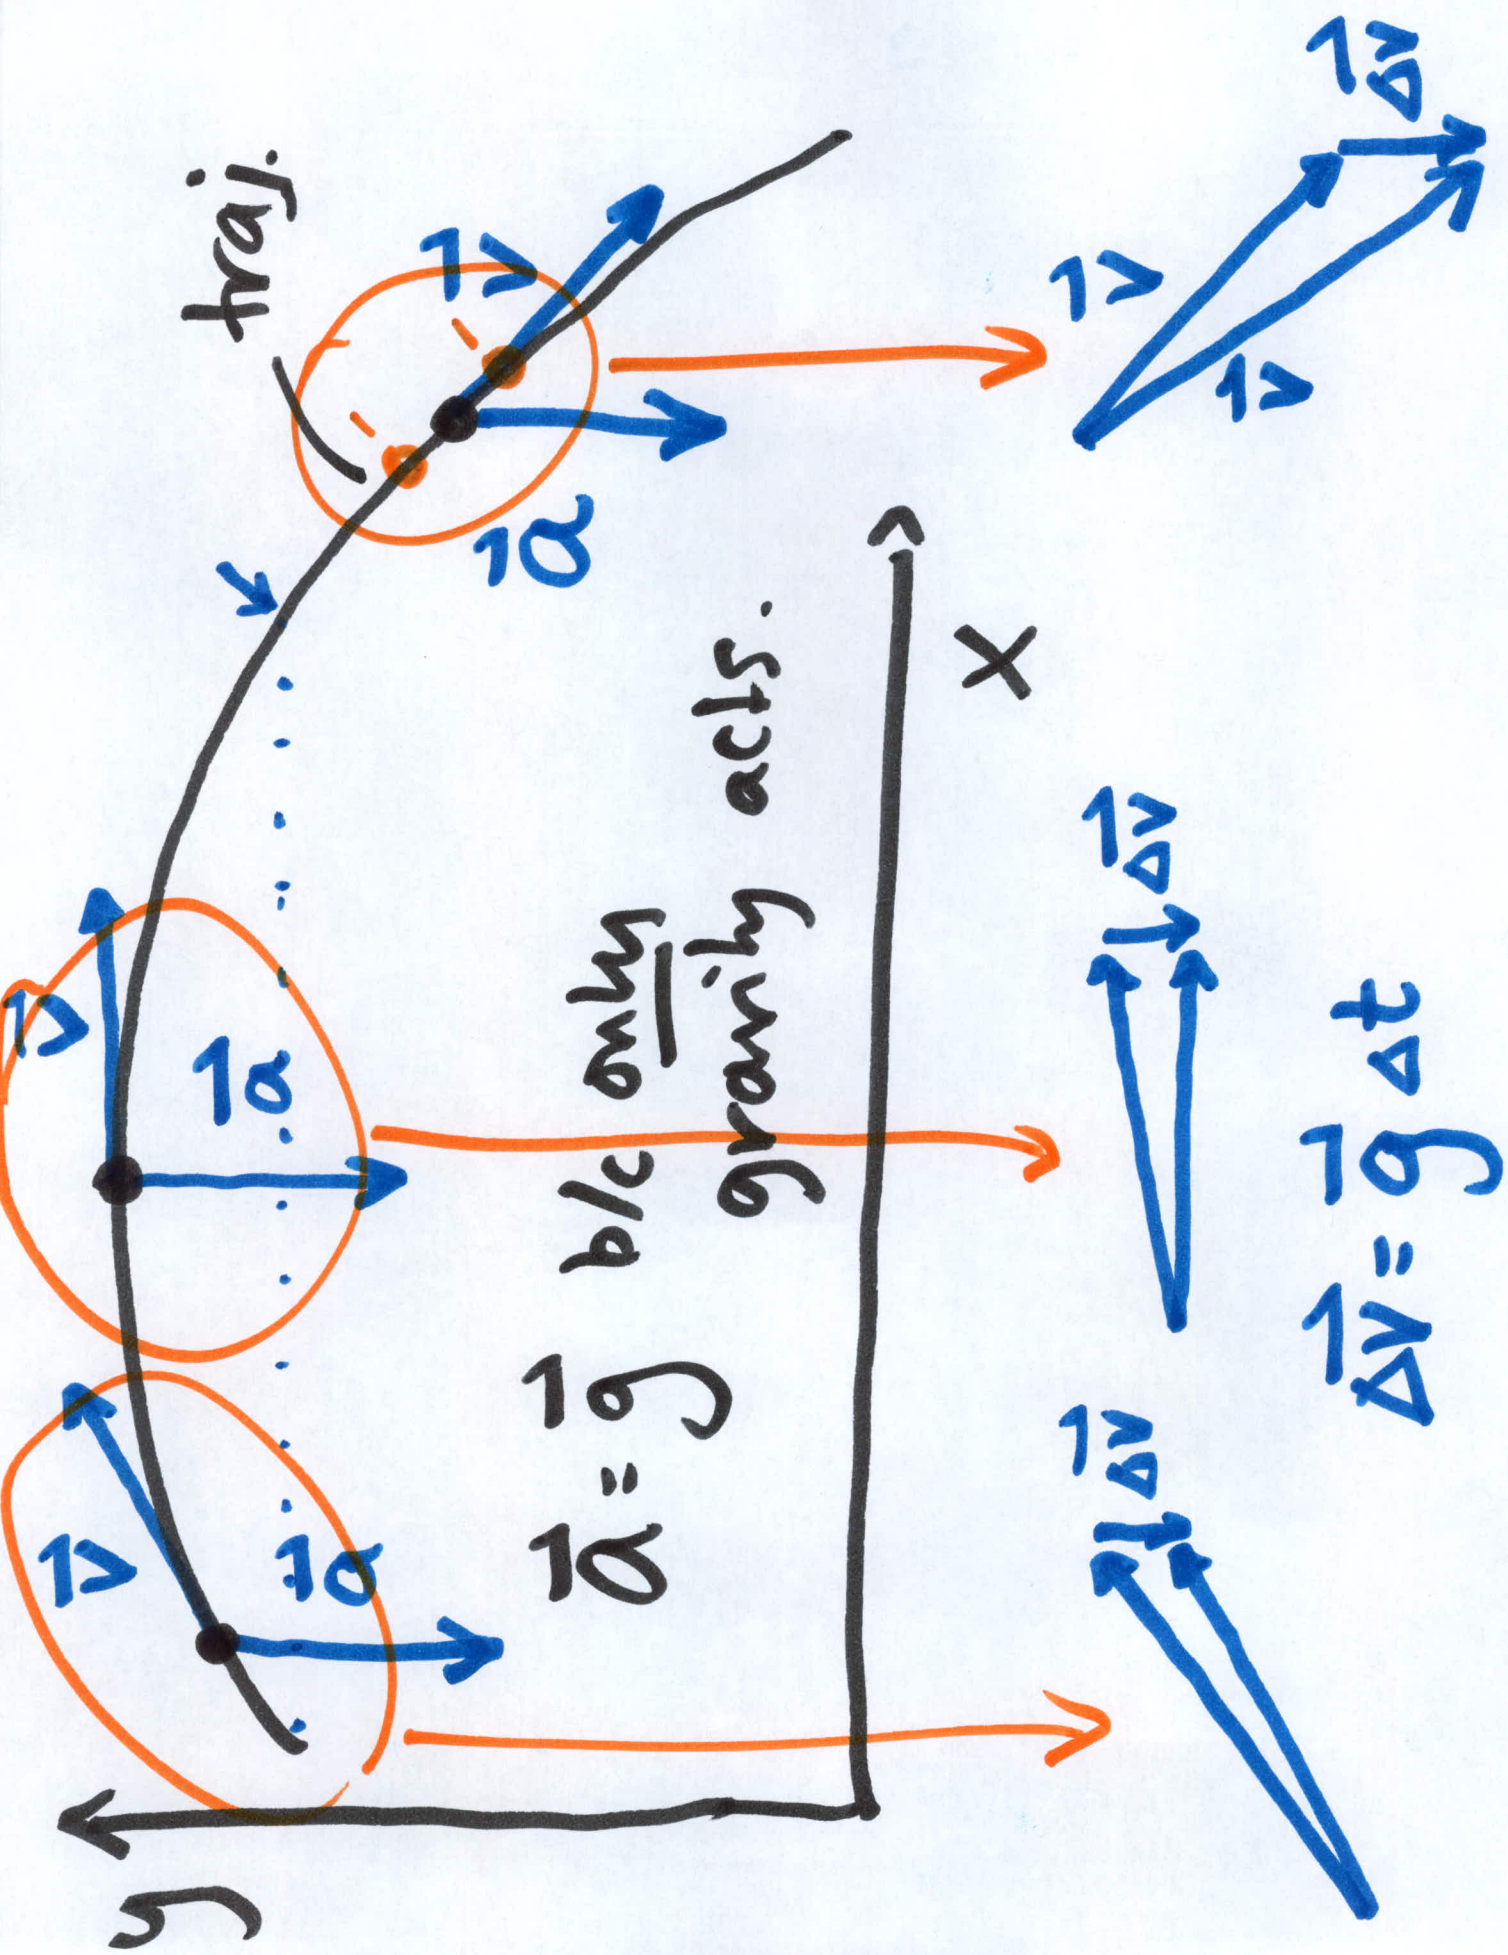 y
v⃗
a⃗
v⃗
a⃗
traj.
v⃗
a⃗
a⃗ = g⃗ b/c only
gravity acts.
x
Δv⃗
Δv⃗
v⃗
v⃗
Δv⃗
Δv⃗ = g⃗ Δt